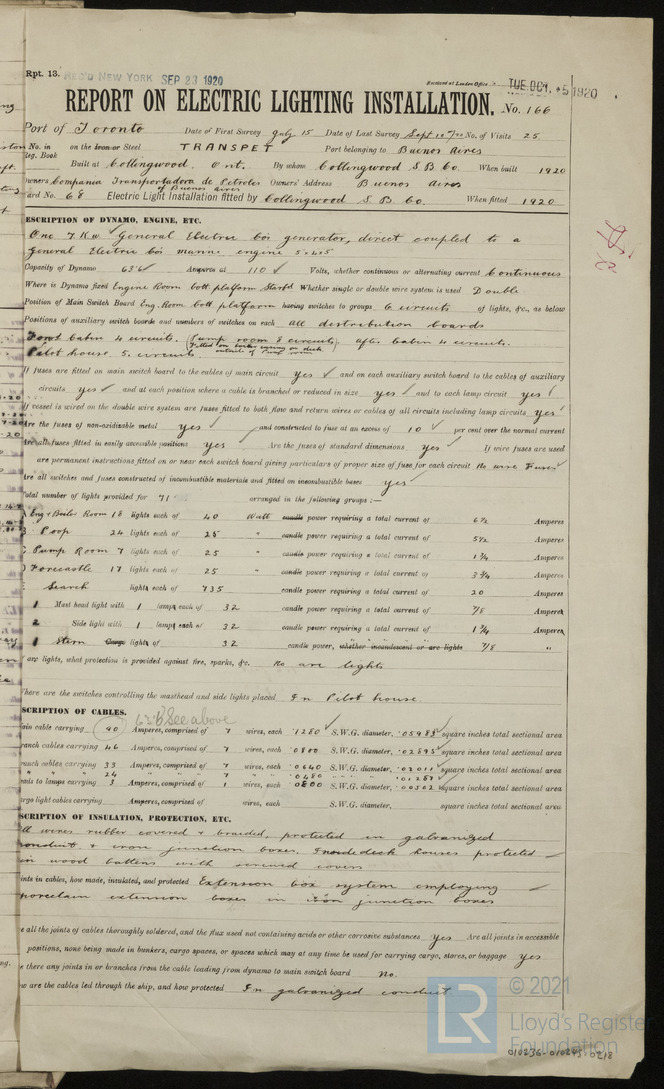 Rpt. 13. REC'D NEW YORK SEP 23 1920
Received at London Office TUE. OCT. 5 1920
REPORT ON ELECTRIC LIGHTING INSTALLATION. No. 166
Port of Toronto Date of First Survey July 15 Date of Last Survey Sept No. of Visits 25
No. in Reg. Book on the Iron or Steel TRANSPET Port belonging to Buenos Aires
Built at Collingwood. Ont. By whom Collingwood S. B. Co. When built 1920
Owners Compania Transportadora de Petroleo of Buenos Aires Owners' Address Buenos Aires
ard No. 68 Electric Light Installation fitted by Collingwood S. B. Co. When fitted 1920
ESCRIPTION OF DYNAMO, ENGINE, ETC.
One 7 Kw General Electric Co's generator, direct coupled to a
General Electric Co's marine engine 5 x 4.5"
Capacity of Dynamo 63.6 Amperes at 110 Volts, whether continuous or alternating current Continuous
Where is Dynamo fixed Engine Room bott platform Starb'd Whether single or double wire system is used Double
Position of Main Switch Board Eng. Room bott platform having switches to groups 6 circuits of lights, &c., as below
Positions of auxiliary switch boards and numbers of switches on each all distribution boards
Ford cabin 4 circuits. (Pump room 3 circuits) after cabin 4 circuits.
Pilot house 5 circuits. outside of Pump room
If fuses are fitted on main switch board to the cables of main circuit yes and on each auxiliary switch board to the cables of auxiliary
circuits yes and at each position where a cable is branched or reduced in size yes and to each lamp circuit yes
If vessel is wired on the double wire system are fuses fitted to both flow and return wires or cables of all circuits including lamp circuits yes
Are the fuses of non-oxidizable metal yes and constructed to fuse at an excess of 10 per cent over the normal current
Are all fuses fitted in easily accessible positions yes Are the fuses of standard dimensions yes If wire fuses are used
are permanent instructions fitted on or near each switch board giving particulars of proper size of fuse for each circuit No wire Fuses
Are all switches and fuses constructed of incombustible materials and fitted on incombustible bases yes
Total number of lights provided for 71 arranged in the following groups :—
A Eng + Boiler Room 18 lights each of 40 Watt candle power requiring a total current of 6½ Amperes
B Poop 24 lights each of 25 " candle power requiring a total current of 5½ Amperes
C Pump Room 7 lights each of 25 " candle power requiring a total current of 1¾ Amperes
D Forecastle 17 lights each of 25 " candle power requiring a total current of 3¾ Amperes
E Search lights each of 735 candle power requiring a total current of 20 Amperes
1 Mast head light with 1 lamps each of 32 candle power requiring a total current of 7/8 Amperes
2 Side light with 1 lamps each of 32 candle power requiring a total current of 1¾ Amperes
1 Stern Cargo lights of 32 candle power, whether incandescent or arc lights 7/8 "
If arc lights, what protection is provided against fire, sparks, &c. No arc lights
Where are the switches controlling the masthead and side lights placed In Pilot house.
SCRIPTION OF CABLES. 63.6 See above
ain cable carrying 40 Amperes, comprised of 7 wires, each .1280 S.W.G. diameter, .05483 square inches total sectional area
ranch cables carrying 46 Amperes, comprised of 7 wires, each .0800 S.W.G. diameter, .02895 square inches total sectional area
ranch cables carrying 33 Amperes, comprised of 7 wires, each .0640 S.W.G. diameter, .02011 square inches total sectional area
" " " 24 " " 7 " " .0480 " " .01287
eads to lamps carrying 3 Amperes, comprised of 1 wires, each .0800 S.W.G. diameter, .00502 square inches total sectional area
argo light cables carrying Amperes, comprised of wires, each S.W.G. diameter, square inches total sectional area
SCRIPTION OF INSULATION, PROTECTION, ETC.
All wires rubber covered & braided, protected in galvanized
conduit & iron junction boxes. Inside deck houses protected
in wood battens with screwed covers
ints in cables, how made, insulated, and protected Extension box system employing
porcelain extension boxes in iron junction boxes
e all the joints of cables thoroughly soldered, and the flux used not containing acids or other corrosive substances yes Are all joints in accessible
positions, none being made in bunkers, cargo spaces, or spaces which may at any time be used for carrying cargo, stores, or baggage yes
e there any joints in or branches from the cable leading from dynamo to main switch board No.
w are the cables led through the ship, and how protected In galvanized conduit
LR © 2021
Lloyd's Register
Foundation
010236-010245-0218